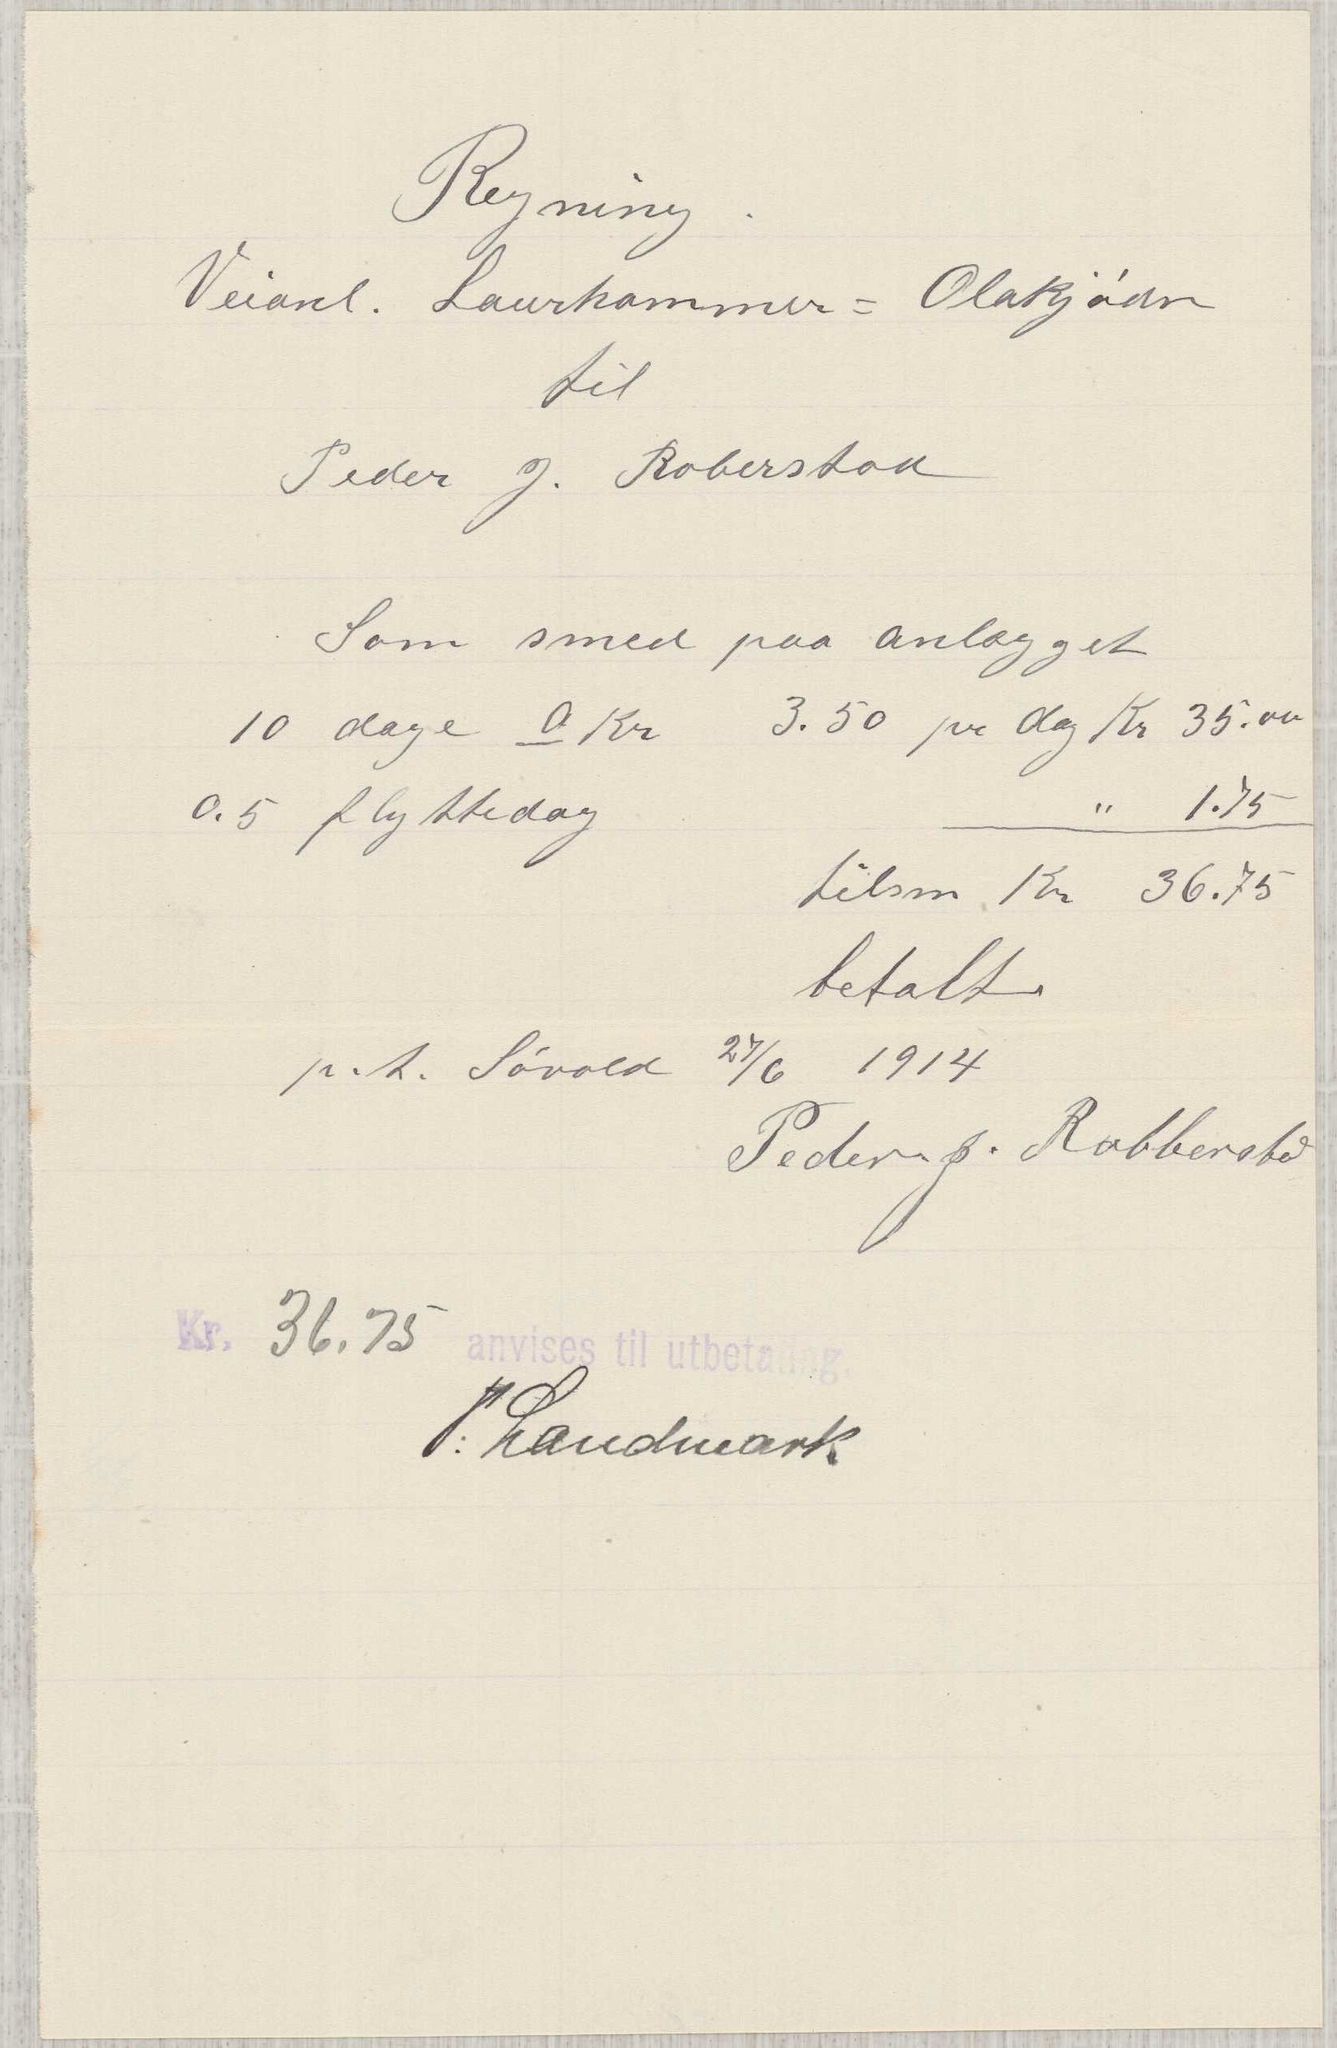 Regning.
Veianl. Laurhammer = Olakjódn
til
Peder J. Roberstad
Som smed paa anlægget
10 dage a Kr 3.50 pr dag Kr 35.00
0.5 flyttedag " 1.75
tilsm Kr 36.75
betalt.
p.t. Sóvold 27/6 1914
Peder J. Robberstd
Kr. 36.75 anvises til utbetaling.
Landmark